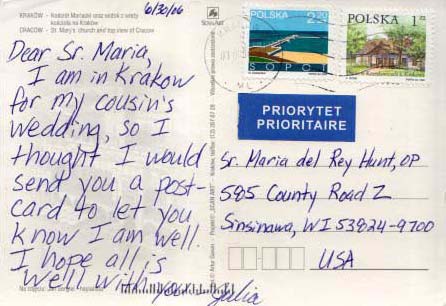 6/30/06
KRAKÓW - Kościół Mariacki oraz widok z wieży
kościoła na Kraków
CRACOW - St. Mary's church and top view of Cracow
Dear Sr. Maria,
I am in Krakow
for my cousin's
wedding, so I
thought I would
send you a post-
card to let you
know I am well.
I hope all is
well with you.
Julia
POLSKA 2,20
SOPOT
POLSKA 1
PRIORYTET
PRIORITAIRE
Sr. Maria del Rey Hunt, OP
585 County Road Z
Sinsinawa, WI 53824-9700
USA